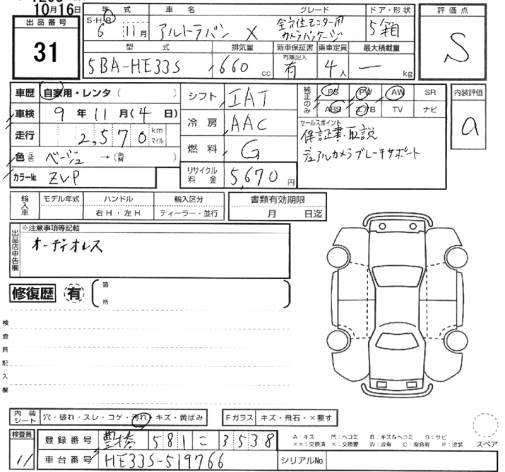 10月16日
出品番号
31
年式 車名 グレード ドア・形状 評価点
S・H・R 6年 11月 アルトラパン X 全方位モニター用カメラパッケージ 5 箱 S
型式 排気量 新車保証書 乗車定員 最大積載量
有無記入
5BA-HE33S 660cc 有 4人 ― kg
車歴 自家用・レンタ( )
車検 9年 11月(4日)
走行 2,570 km マイル
色 ベージュ →( )
カラー№ ZVP
シフト IAT
冷房 AAC
燃料 G
リサイクル料金 5,670円
純正のみ PS PW AW SR
ABS エアB TV ナビ
セールスポイント
保証書・取説
デュアルカメラブレーキサポート
内装評価
a
輸入車 モデル年式 ハンドル 輸入区分 書類有効期限
右H・左H ディーラー・並行 月 日迄
出品店申告欄
※注意事項等記載
オーディオレス
修復歴 有 箇所
検査員記入欄
内装シート 穴・破れ・スレ・コゲ・汚れ・キズ・黄ばみ Fガラス キズ・飛石・×要す
スペア
検査員
11
登録番号 豊橋 581 こ 3538
車台番号 HE33S-519766 シリアルNo.